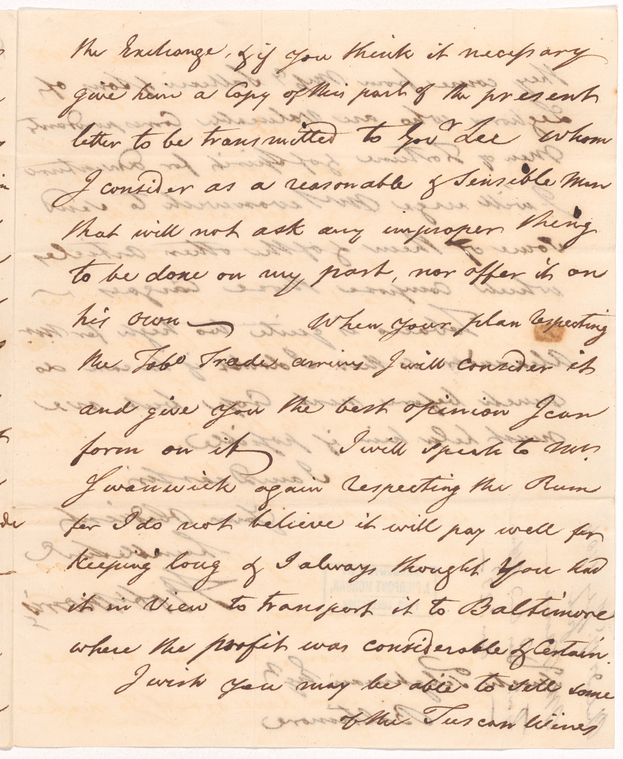 the Exchange, & if you think it necessary
give him a Copy of this part of the present
letter to be transmitted to Govr Lee whom
I consider as a reasonable & Sensible Man
that will not ask any improper thing
to be done on my part, nor offer it on
his own — When your plan respecting
the Tobo Trade arrives I will consider it
and give you the best opinion I can
form on it I will speak to Mr
Swanwick again respecting the Rum
for I do not believe it will pay well for
keeping long & I always thought you had
it in View to transport it to Baltimore
where the profit was considerable & Certain.
I wish you may be able to sell some
of the Tuscan Wines